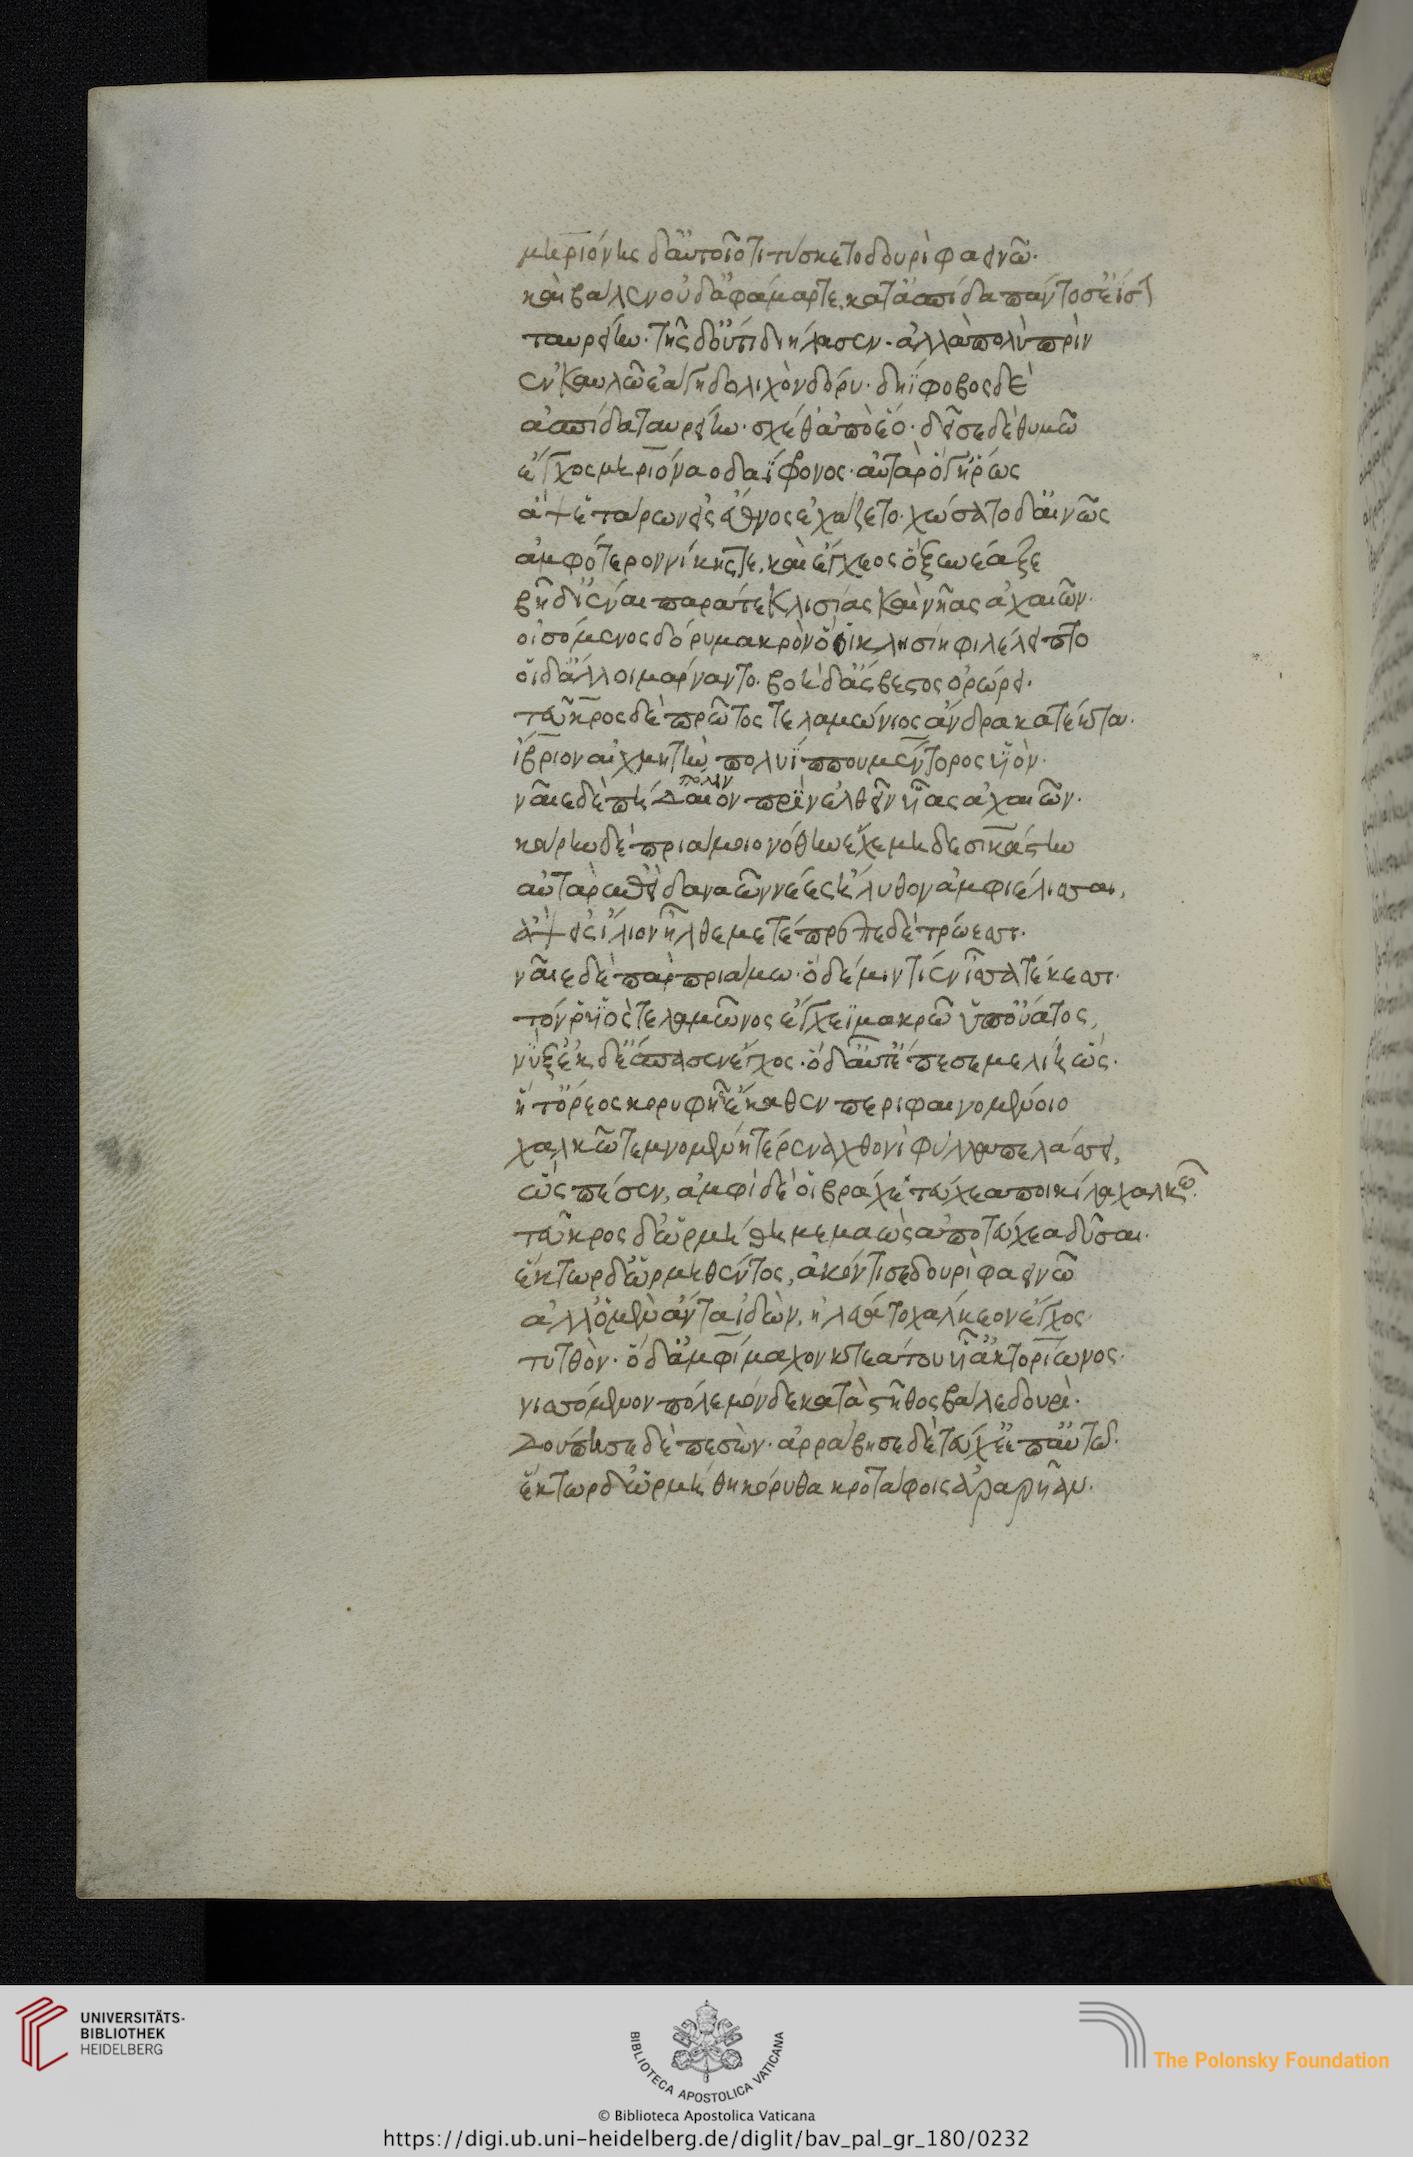 μηριόνης δ' αὐτοῖο τιτύσκετο δουρὶ φαεινῶ·
καὶ βάλεν οὐδ' ἀφάμαρτε, κατ' ἀσπίδα πάντοσ' ἐΐσην
ταυρείην· τῆς δ' οὔτι διήλασεν· ἀλλὰ πολὺ πρὶν
ἐν καυλῶ ἐάγη δολιχὸν δόρυ· δηΐφοβος δὲ
ἀσπίδα ταυρείην· σχέθ' ἀπὸ ἕο· δεῖσε δὲ θυμῶ
ἔγχος μηριόναο δαΐφονος· αὐτὰρ ὅγ' ἥρως
ἂψ ἑτάρων εἰς ἔθνος ἐχάζετο· χώσατο δ' αἰνῶς
ἀμφότερον νίκης τε, καὶ ἔγχεος ὃ ξυνέαξε
βῆ δ' ἰέναι παρά τε κλισίας καὶ νῆας ἀχαιῶν·
οἰσόμενος δόρυ μακρὸν ὅ οἱ κλισίηφι λέλειπτο
οἱ δ' ἄλλοι μάρναντο· βοὴ δ' ἄσβεστος ὀρώρει·
τεῦκρος δὲ πρῶτος τελαμώνιος ἄνδρα κατέκτα·
ἴμβριον αἰχμητὴν πολυΐππου μέντορος υἱὸν·
ναῖε δὲ πήδαιον πρὶν ἐλθεῖν υἷας ἀχαιῶν·
κούρην δὲ πριάμοιο νόθην ἔχε μηδεσικάστην
αὐτὰρ ἐπεὶ δαναῶν νέες ἤλυθον ἀμφιέλισσαι,
ἂψ εἰς ἴλιον ἦλθε μετέπρεπε δὲ τρώεσσι·
ναῖε δὲ πὰρ πριάμω· ὁ δέ μιν τίεν ἶσα τέκεσσι·
τόν ῥ' υἱὸς τελαμῶνος ἔγχεϊ μακρῶ ὑπ' οὔατος,
νύξ' ἐκ δ' ἔσπασεν ἔγχος· ὁ δ' αὖτ' ἔπεσε μελίη ὥς·
ἥ τ' ὄρεος κορυφῆ ἕκαθεν περιφαινομένοιο
χαλκῶ τεμνομένη τέρενα χθονὶ φύλλα πελάσσει,
ὣς πέσεν, ἀμφὶ δὲ οἱ βράχε τεύχεα ποικίλα χαλκῶ·
τεῦκρος δ' ὡρμήθη μεμαὼς ἀπὸ τεύχεα δῦσαι·
ἕκτωρ δ' ὁρμηθέντος, ἀκόντισε δουρὶ φαεινῶ
ἀλλ' ὃ μὲν ἄντα ἰδὼν, ἠλεύατο χάλκεον ἔγχος
τυτθὸν· ὁ δ' ἀμφίμαχον κτεάτου υἷ' ἀκτορίωνος·
νισσόμενον πόλεμόνδε κατὰ στῆθος βάλε δουρὶ·
δούπησε δὲ πεσὼν· ἀράβησε δὲ τεύχε' ἐπ' αὐτῶ·
ἕκτωρ δ' ὡρμήθη κόρυθα κροτάφοις ἀραρῆαν·
UNIVERSITÄTS-
BIBLIOTHEK
HEIDELBERG
BIBLIOTECA APOSTOLICA VATICANA
The Polonsky Foundation
© Biblioteca Apostolica Vaticana
https://digi.ub.uni-heidelberg.de/diglit/bav_pal_gr_180/0232